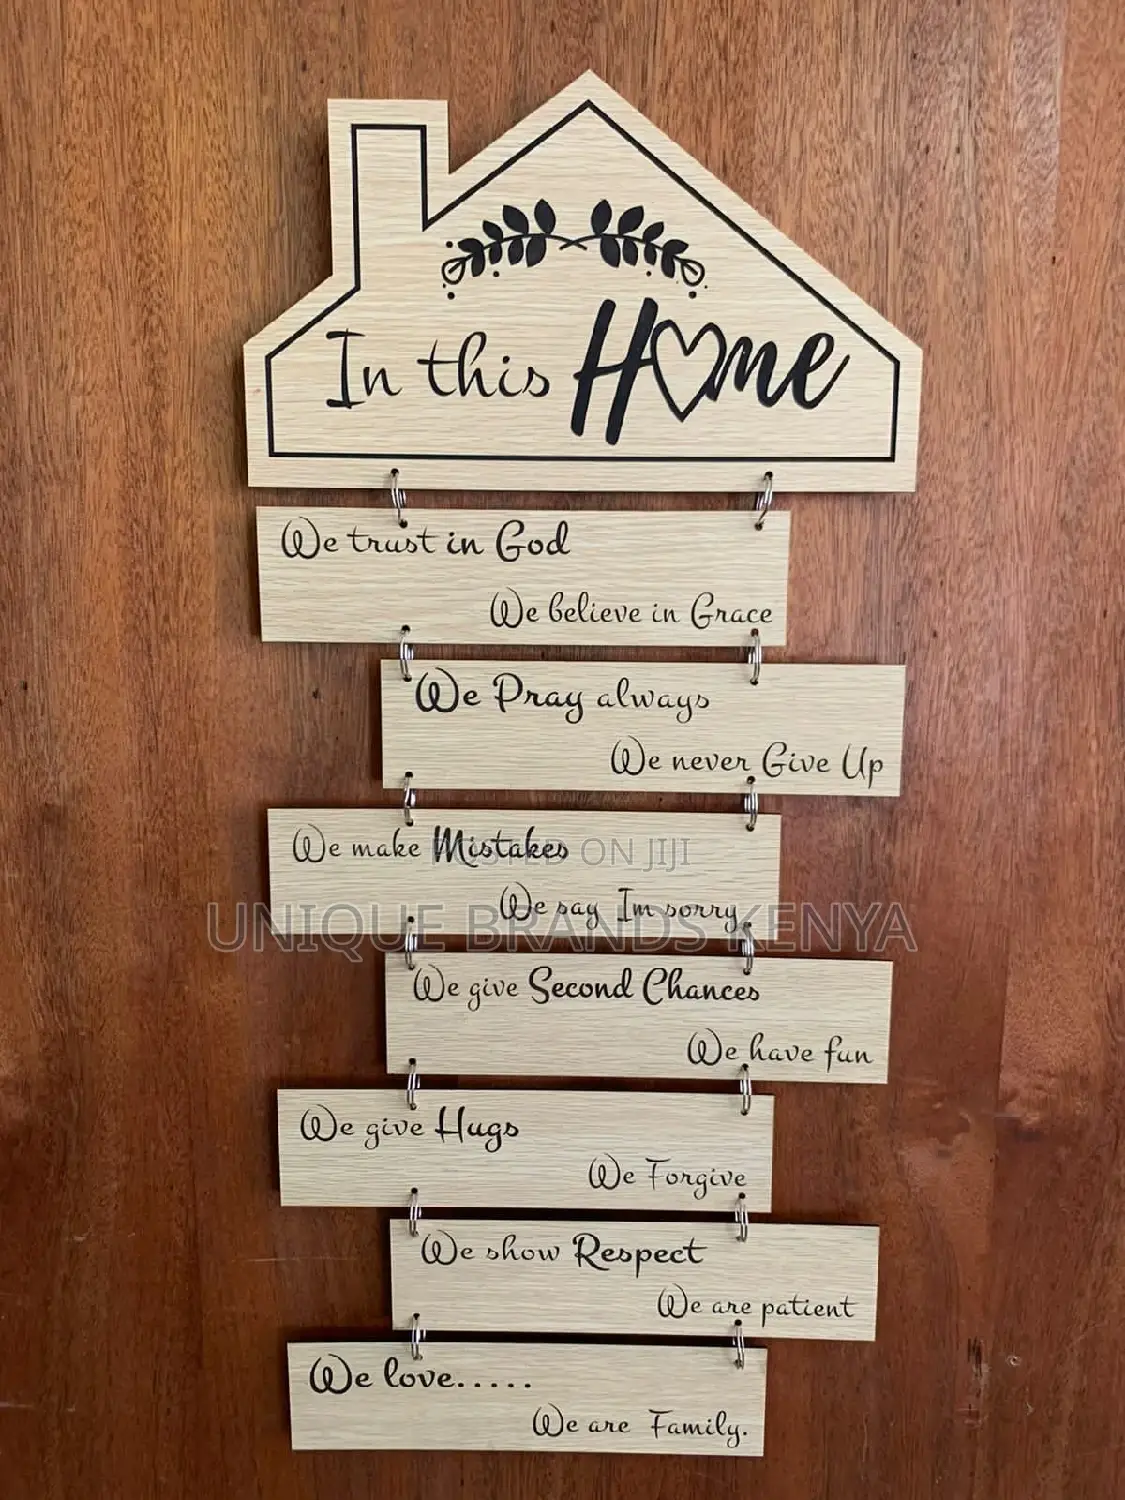 In this Home
We trust in God
We believe in Grace
We Pray always
We never Give Up
We make Mistakes
POSTED ON JIJI
We say Im sorry
UNIQUE BRANDS KENYA
We give Second Chances
We have fun
We give Hugs
We Forgive
We show Respect
We are patient
We love.....
We are Family.